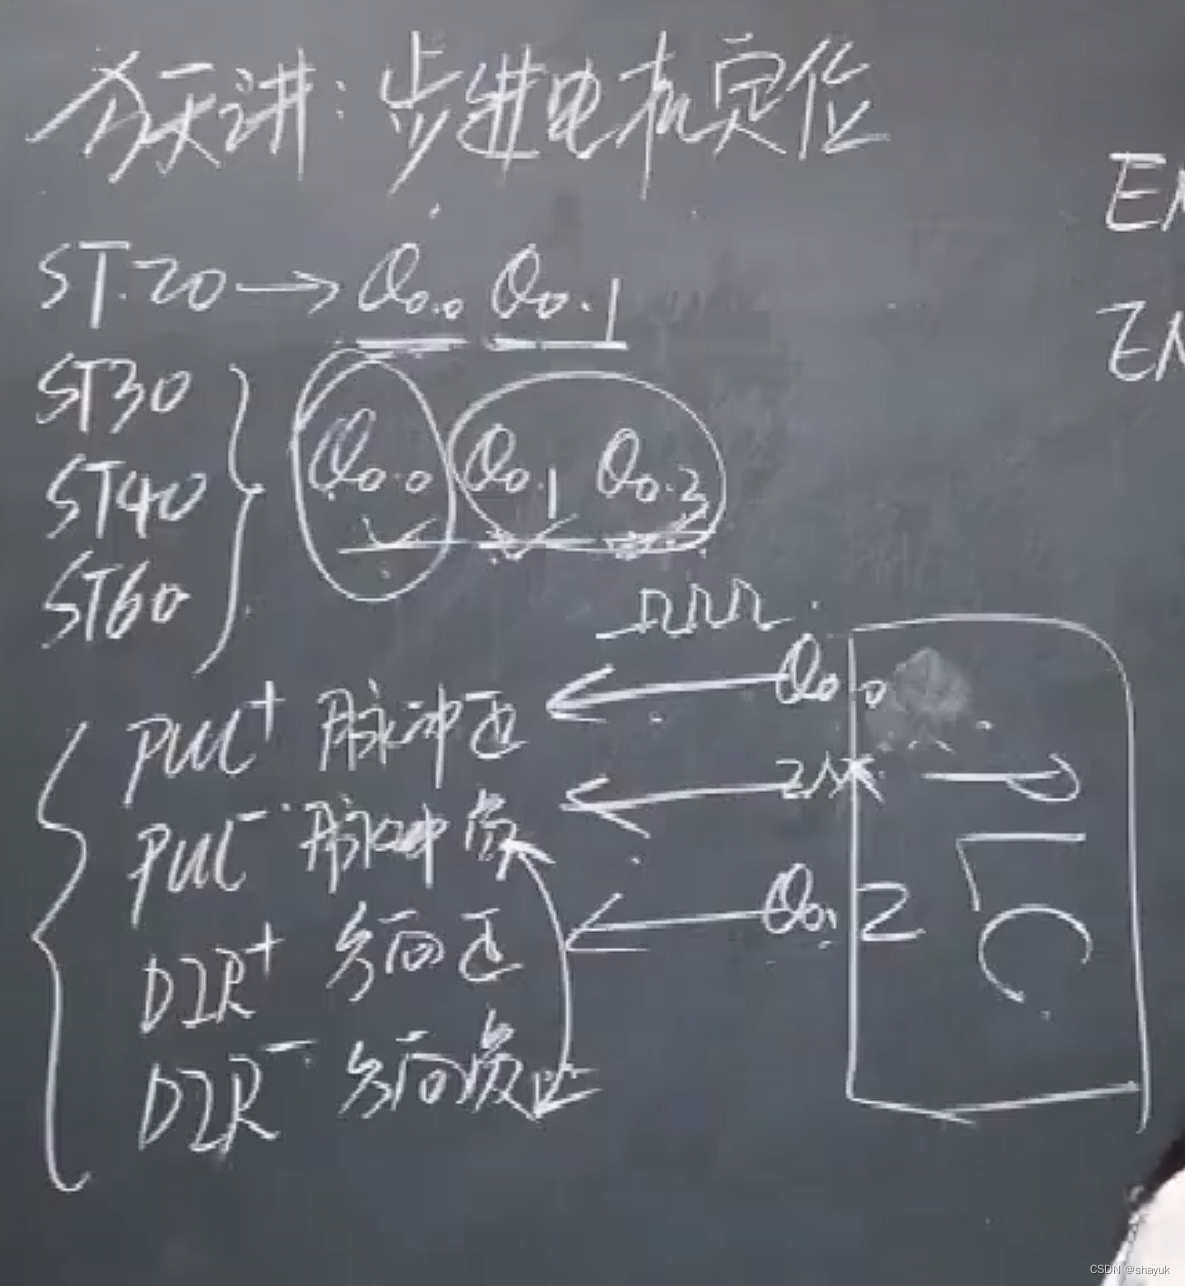 今天讲:步进电机定位
EN
ST.20→Q0.0 Q0.1
EN
ST30
ST40
Q0.0 Q0.1 Q0.3
ST60
Q0.0
PUL+ 脉冲正
2M
PUL- 脉冲负
Q0.2
DIR+ 方向正
PLC
DIR- 方向负
CSDN @shayuk